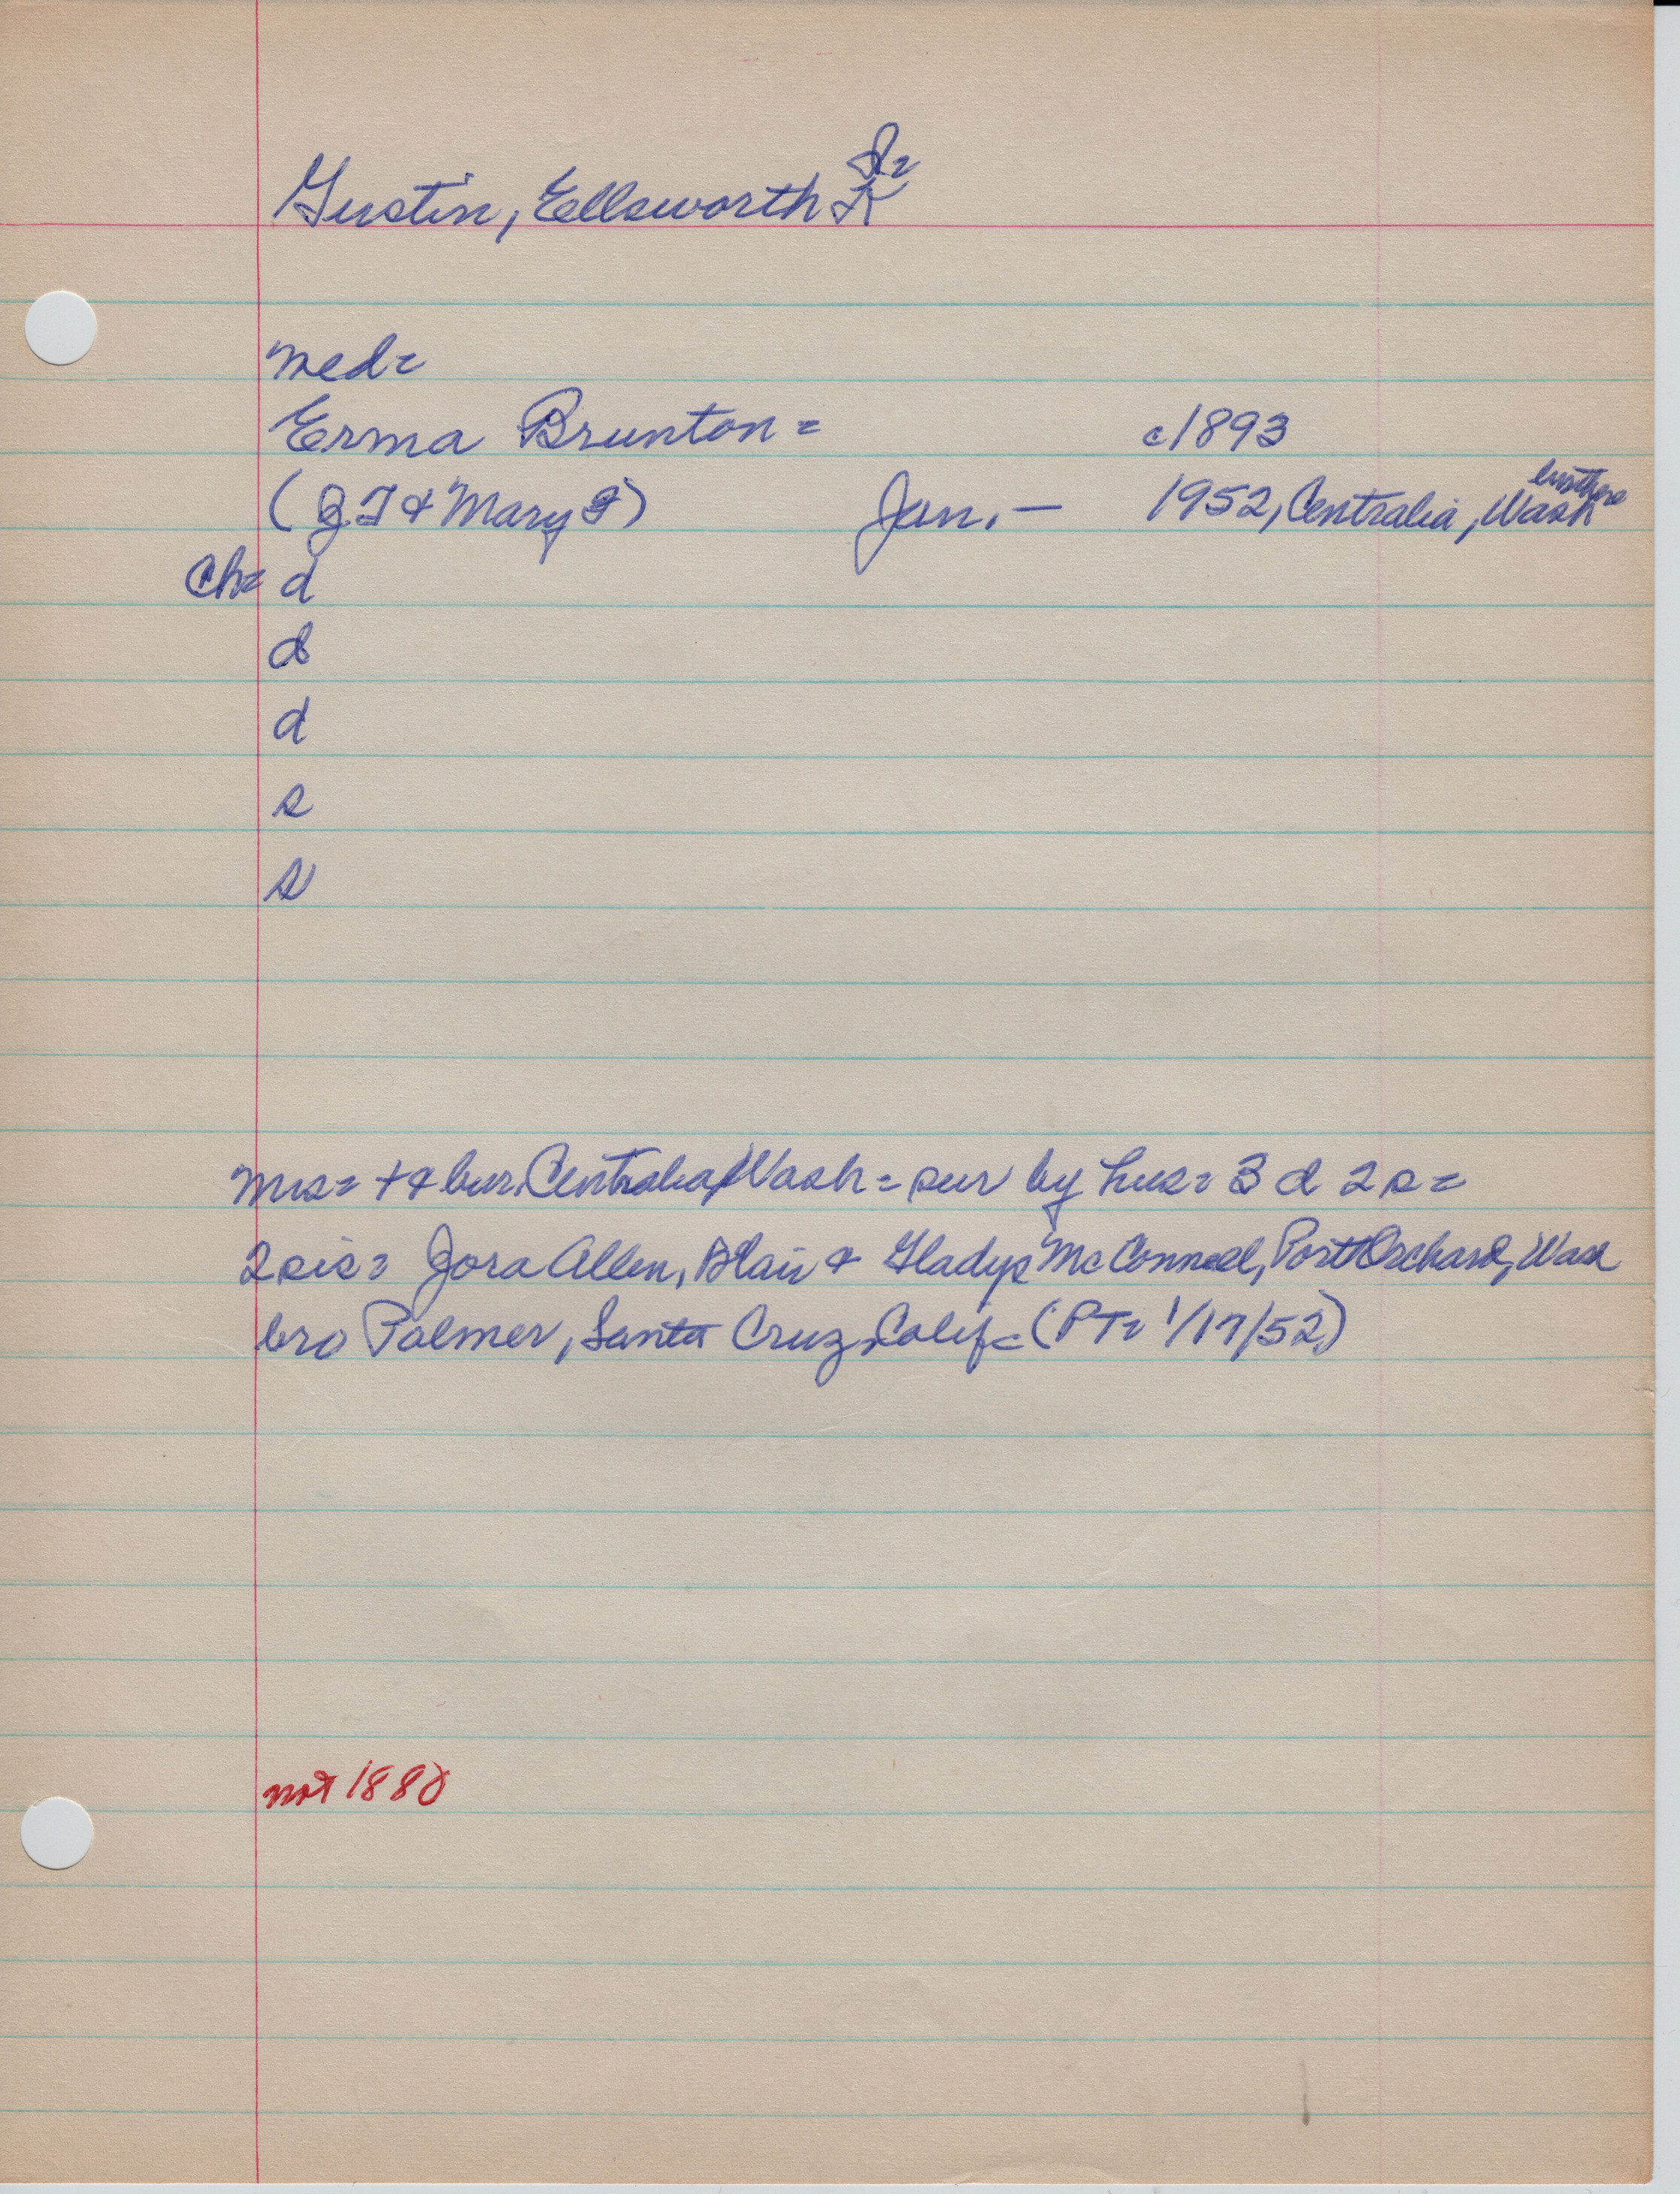 Gustin, Ellsworth
med=
Erma Brunton = c1893
(J.T & Mary J) Jan. - 1952, Centralia, Wash
Ch= d
d
d
s
s
mrs= + & bur. Centralia, Wash = sur by hus= 3 d 2 s =
2 sis= Jora Allen, Blair & Gladys McConnell, Port Orchard, Wash
bro Palmer, Santa Cruz, Calif = (PT= 1/17/52)
not 1880